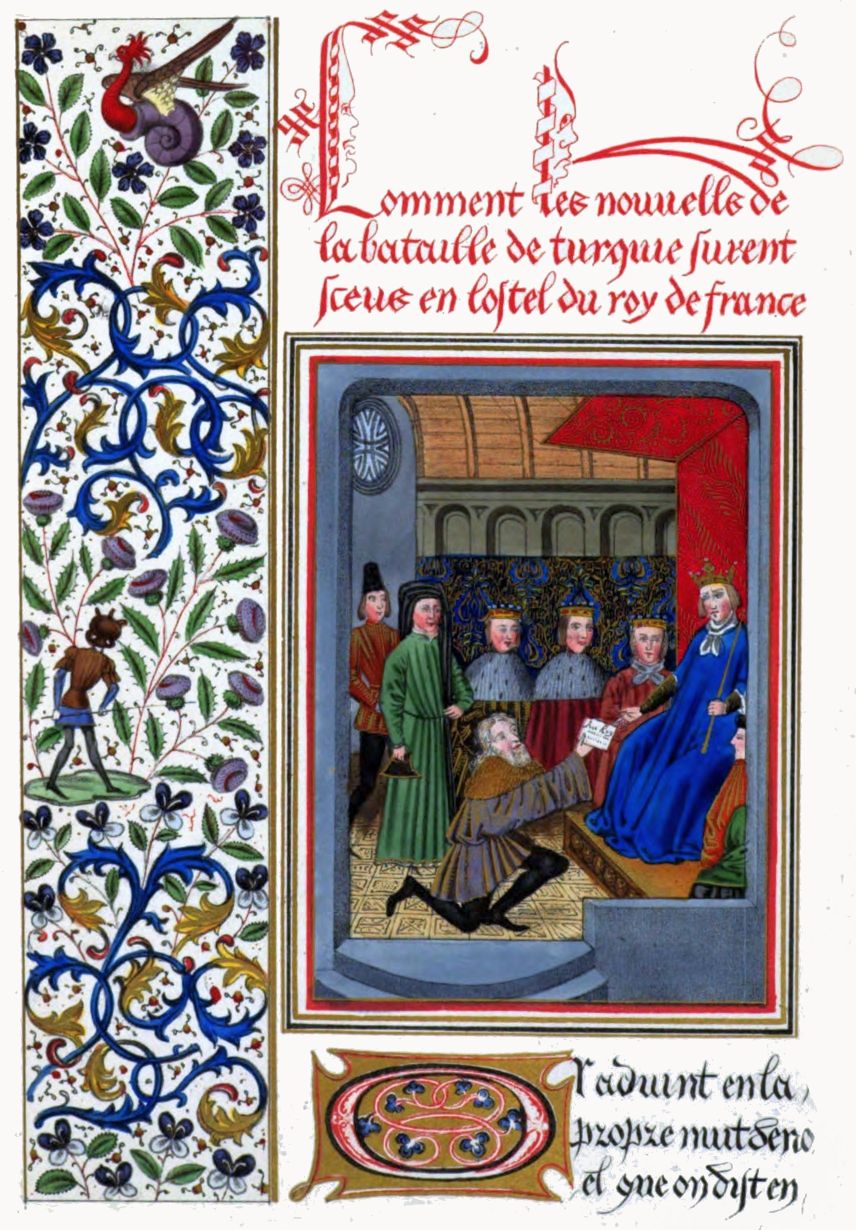 Comment les nouuelles de
la bataille de turquie furent
sceus en lostel du roy de france
Or aduint en la
propre nuit de no
el que on dist en